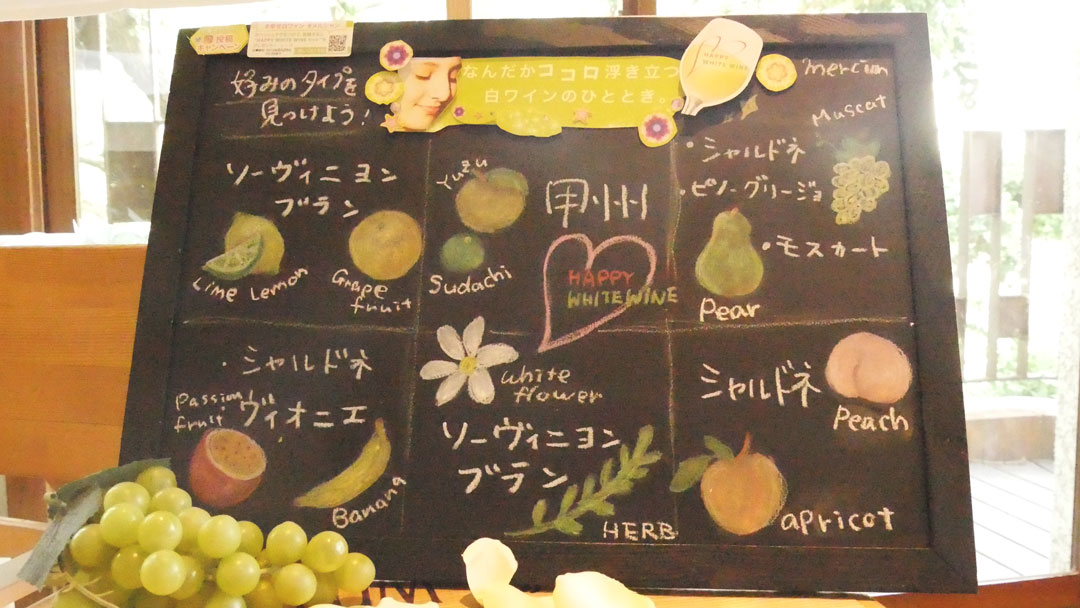 投稿
キャンペーン
HAPPY WHITE WINE
なんだかココロ浮き立つ
白ワインのひととき。
HAPPY
WHITE WINE
mercian
好みのタイプを
見つけよう!
ソーヴィニヨン
ブラン
Lime Lemon
Grape
fruit
Yuzu
Sudachi
甲州
HAPPY
WHITE WINE
Muscat
・シャルドネ
・ピノ・グリージョ
・モスカート
Pear
・シャルドネ
ヴィオニエ
Passion
fruit
Banana
white
flower
ソーヴィニヨン
ブラン
HERB
シャルドネ
Peach
apricot